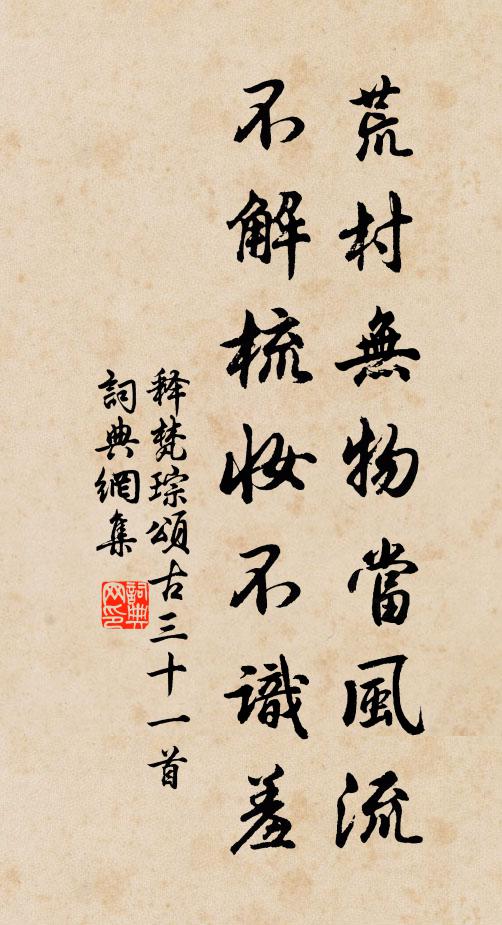 荒村無物當風流
不解梳妆不識羞
释梵琮頌古三十一首
詞典網集
詞典网印